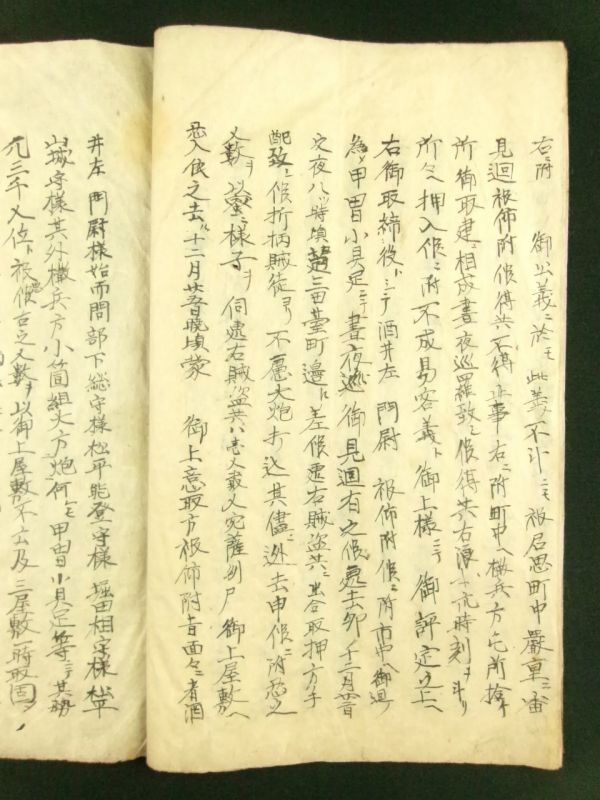 右ニ附 御公義ニ於ヒモ此義不斗ニモ被居思町中嚴重ニ番
見廻被仰附候得共不得止事右ニ附町中ヘ撒兵方屯所捨ケ
所御取建ニ相成晝夜巡羅致シ候得共右浪士流時刻ヲ斗リ
所々ヘ押入候ニ附不成易客義ト御上様ニテ御評定之上ヘ
右御取締役トシテ酒井左 門尉 被仰附候ニ附市中ヘ御廻
為ノ甲冑小具足ニテ晝夜巡御見廻有之候處去卯十二月廿
之夜八ツ時頃 三田臺町邊ニ差候處右賊盗共ニ出合取押方手
配致シ候折柄賊徒ヨリ不慮大炮打込其儘ニ逃去申候ニ附恐之
人數ヲ 様子ヲ伺處右賊盗共ハ壱人最人宛薩刕戸御上屋敷ヘ
忍入候之去ル十二月廿五日暁頃蒙 御上意取方被仰附旨面々ニ者酒
井左 門尉様始而間部下総守様松平能登守様 堀田相守様 松平
山城守様其外撒兵方小筒組大方炮何ヒモ甲冑小具足等ニテ其勢
凡三千人位ト被候右之人數ヲ以御上屋敷不公及三屋敷時取固メ